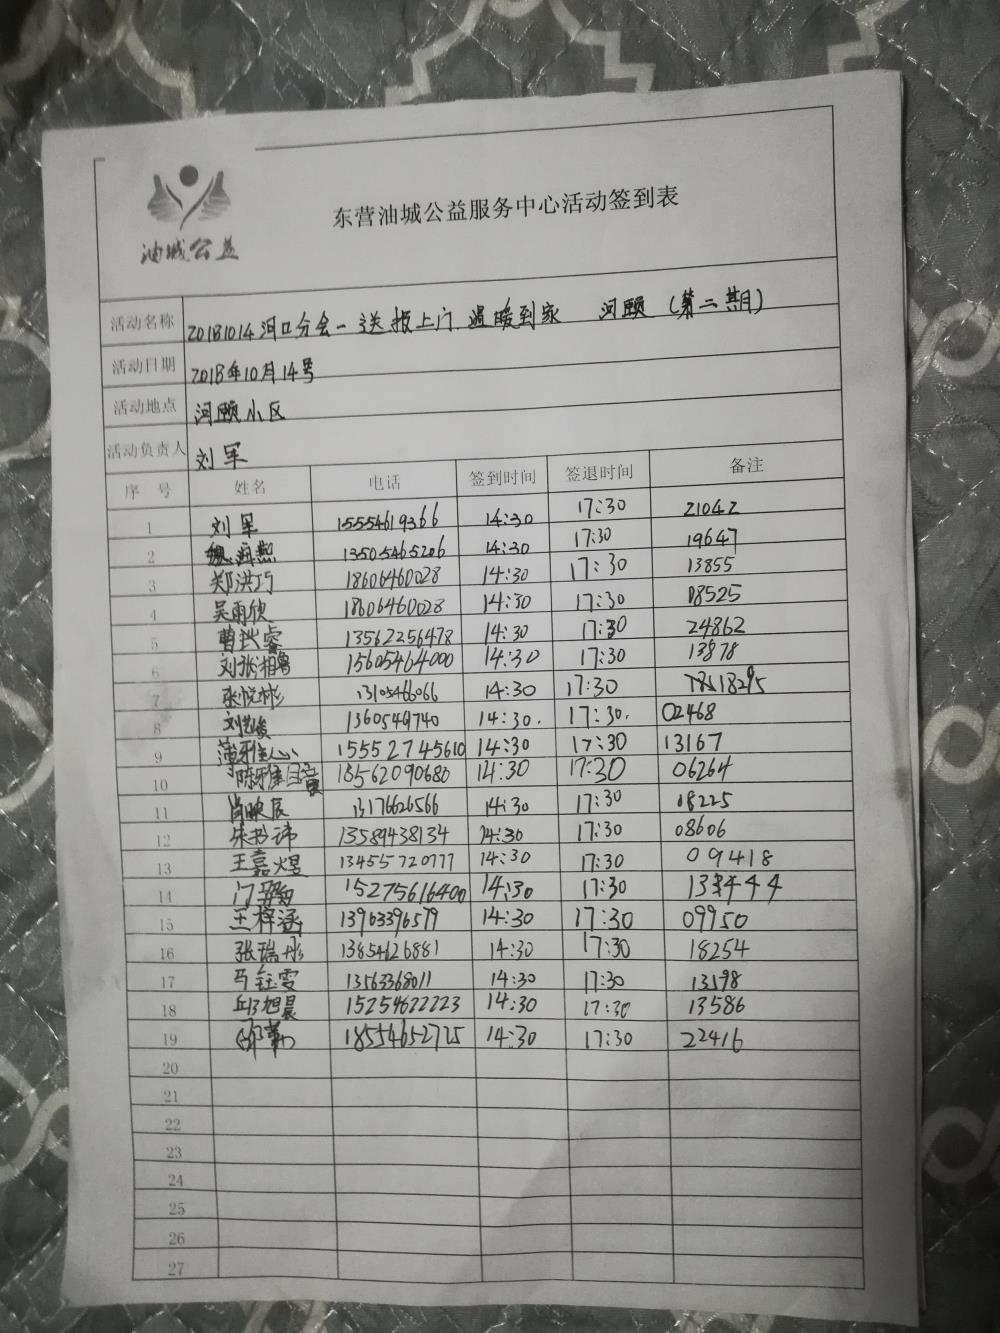 油城公益
东营油城公益服务中心活动签到表
活动名称 20181014河口分会-送报上门.温暖到家 河颐(第二期)
活动日期 2018年10月14号
活动地点 河颐小区
活动负责人 刘军
序号 姓名 电话 签到时间 签退时间 备注
1 刘军 15554619366 14:30 17:30 21042
2 13505465206 14:30 17:30 19647
3 郑洪巧 18606460028 14:30 17:30 13855
4 吴雨欣 18606460028 14:30 17:30 08525
5 13562256478 14:30 17:30 24862
6 15605464000 14:30 17:30 13878
7 张悦彬 13105466066 14:30 17:30
8 1360549740 14:30. 17:30. 02468
9 15552745610 14:30 17:30 13167
10 18562090680 14:30 17:30 06264
11 肖映辰 13176626566 14:30 17:30 08225
12 13589438134 14:30 17:30 08606
13 王嘉煜 13455720777 14:30 17:30 09418
14 15275616400 14:30 17:30
15 王梓涵 13963396579 14:30 17:30 09950
16 张瑞彤 13854626881 14:30 17:30 18254
17 马钰雯 13563368011 14:30 17:30 13598
18 邱旭晨 15254622223 14:30 17:30 13586
19 18554652725 14:30 17:30 22416
20
21
22
23
24
25
26
27